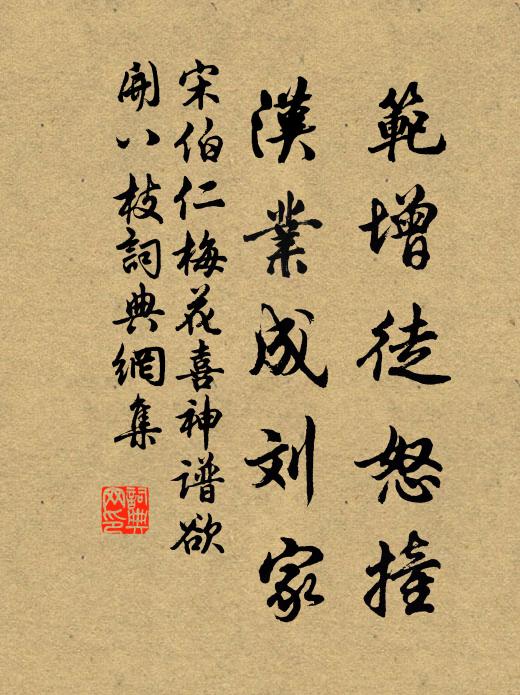 範增徒怒撞
漢業成刘家
宋伯仁梅花喜神谱欲
開八枝詞典網集
詞典网印